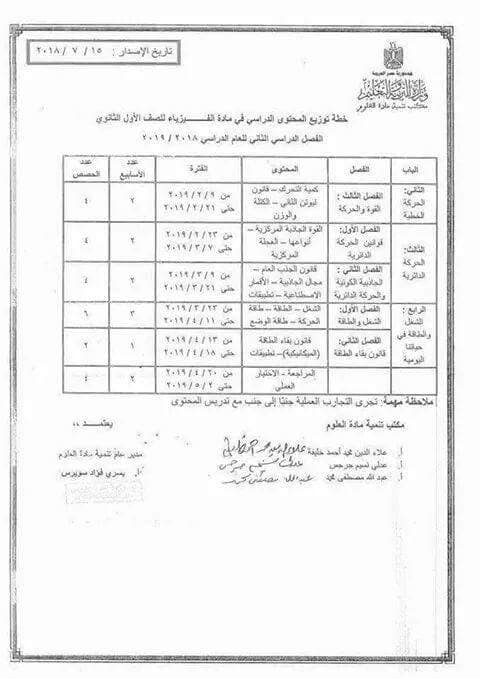 تاريخ الإصدار : ١٥ / ٧ / ٢٠١٨
جمهورية مصر العربية
وزارة التربية والتعليم
مكتب تنمية مادة العلوم
خطة توزيع المحتوى الدراسي في مادة الفـــيزياء للصف الأول الثانوي
الفصل الدراسي الثاني للعام الدراسي ٢٠١٨ / ٢٠١٩
الباب الفصل المحتوى الفترة عدد الأسابيع عدد الحصص
الثاني: الحركة الخطية الفصل الثالث : القوة والحركة كمية التحرك – قانون نيوتن الثاني – الكتلة والوزن من ٩ / ٢ / ٢٠١٩ حتى ٢١ / ٢ / ٢٠١٩ ٢ ٤
الثالث: الحركة الدائرية الفصل الأول: قوانين الحركة الدائرية القوة الجاذبة المركزية – أنواعها – العجلة المركزية من ٢٣ / ٢ / ٢٠١٩ حتى ٧ / ٣ / ٢٠١٩ ٢ ٤
الفصل الثاني : الجاذبية الكونية والحركة الدائرية قانون الجذب العام – مجال الجاذبية – الأقمار الاصطناعية – تطبيقات من ٩ / ٣ / ٢٠١٩ حتى ٢١ / ٣ / ٢٠١٩ ٢ ٤
الرابع : الشغل والطاقة في حياتنا اليومية الفصل الأول: الشغل والطاقة الشغل – الطاقة – طاقة الحركة – طاقة الوضع من ٢٣ / ٣ / ٢٠١٩ حتى ١١ / ٤ / ٢٠١٩ ٣ ٦
الفصل الثاني: قانون بقاء الطاقة قانون بقاء الطاقة (الميكانيكية) – تطبيقات من ١٣ / ٤ / ٢٠١٩ حتى ١٨ / ٤ / ٢٠١٩ ١ ٢
المراجعة – الاختبار العملي من ٢٠ / ٤ / ٢٠١٩ حتى ٢ / ٥ / ٢٠١٩ ٢ ٤
ملاحظة مهمة: تجرى التجارب العملية جنبًا إلى جنب مع تدريس المحتوى
مكتب تنمية مادة العلوم
يعتمـــد ،،
أ. علاء الدين محمد أحمد خليفة
أ. عدلي نسيم جرجس
أ. عبد الله مصطفى محمد
مدير عام تنمية مادة العلوم
أ. يسري فؤاد سويرس